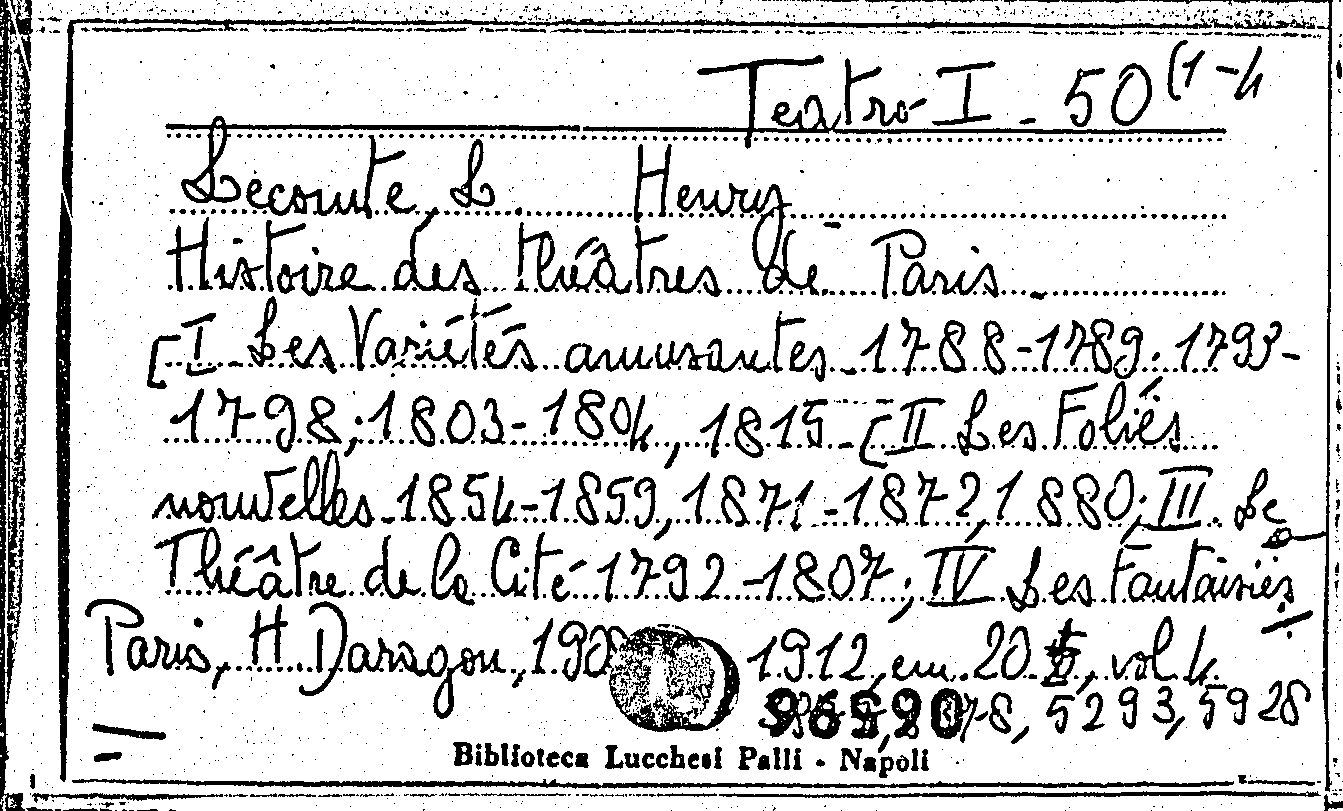 Teatro I - 50 (1-4
Lecomte, L. Henry
Histoire des théâtres de Paris -
[I Les Variétés amusantes 1788-1789. 1793-
1798; 1803-1804, 1815 - [II Les Foliés
nouvelles 1854-1859, 1871-1872, 1880; III. Le
Théâtre de la Cité 1792-1807; IV Les Fantaisies
Paris, H. Daragon, 1912, cm. 20, vol. 4
96590 5293, 5928
Biblioteca Lucchesi Palli - Napoli